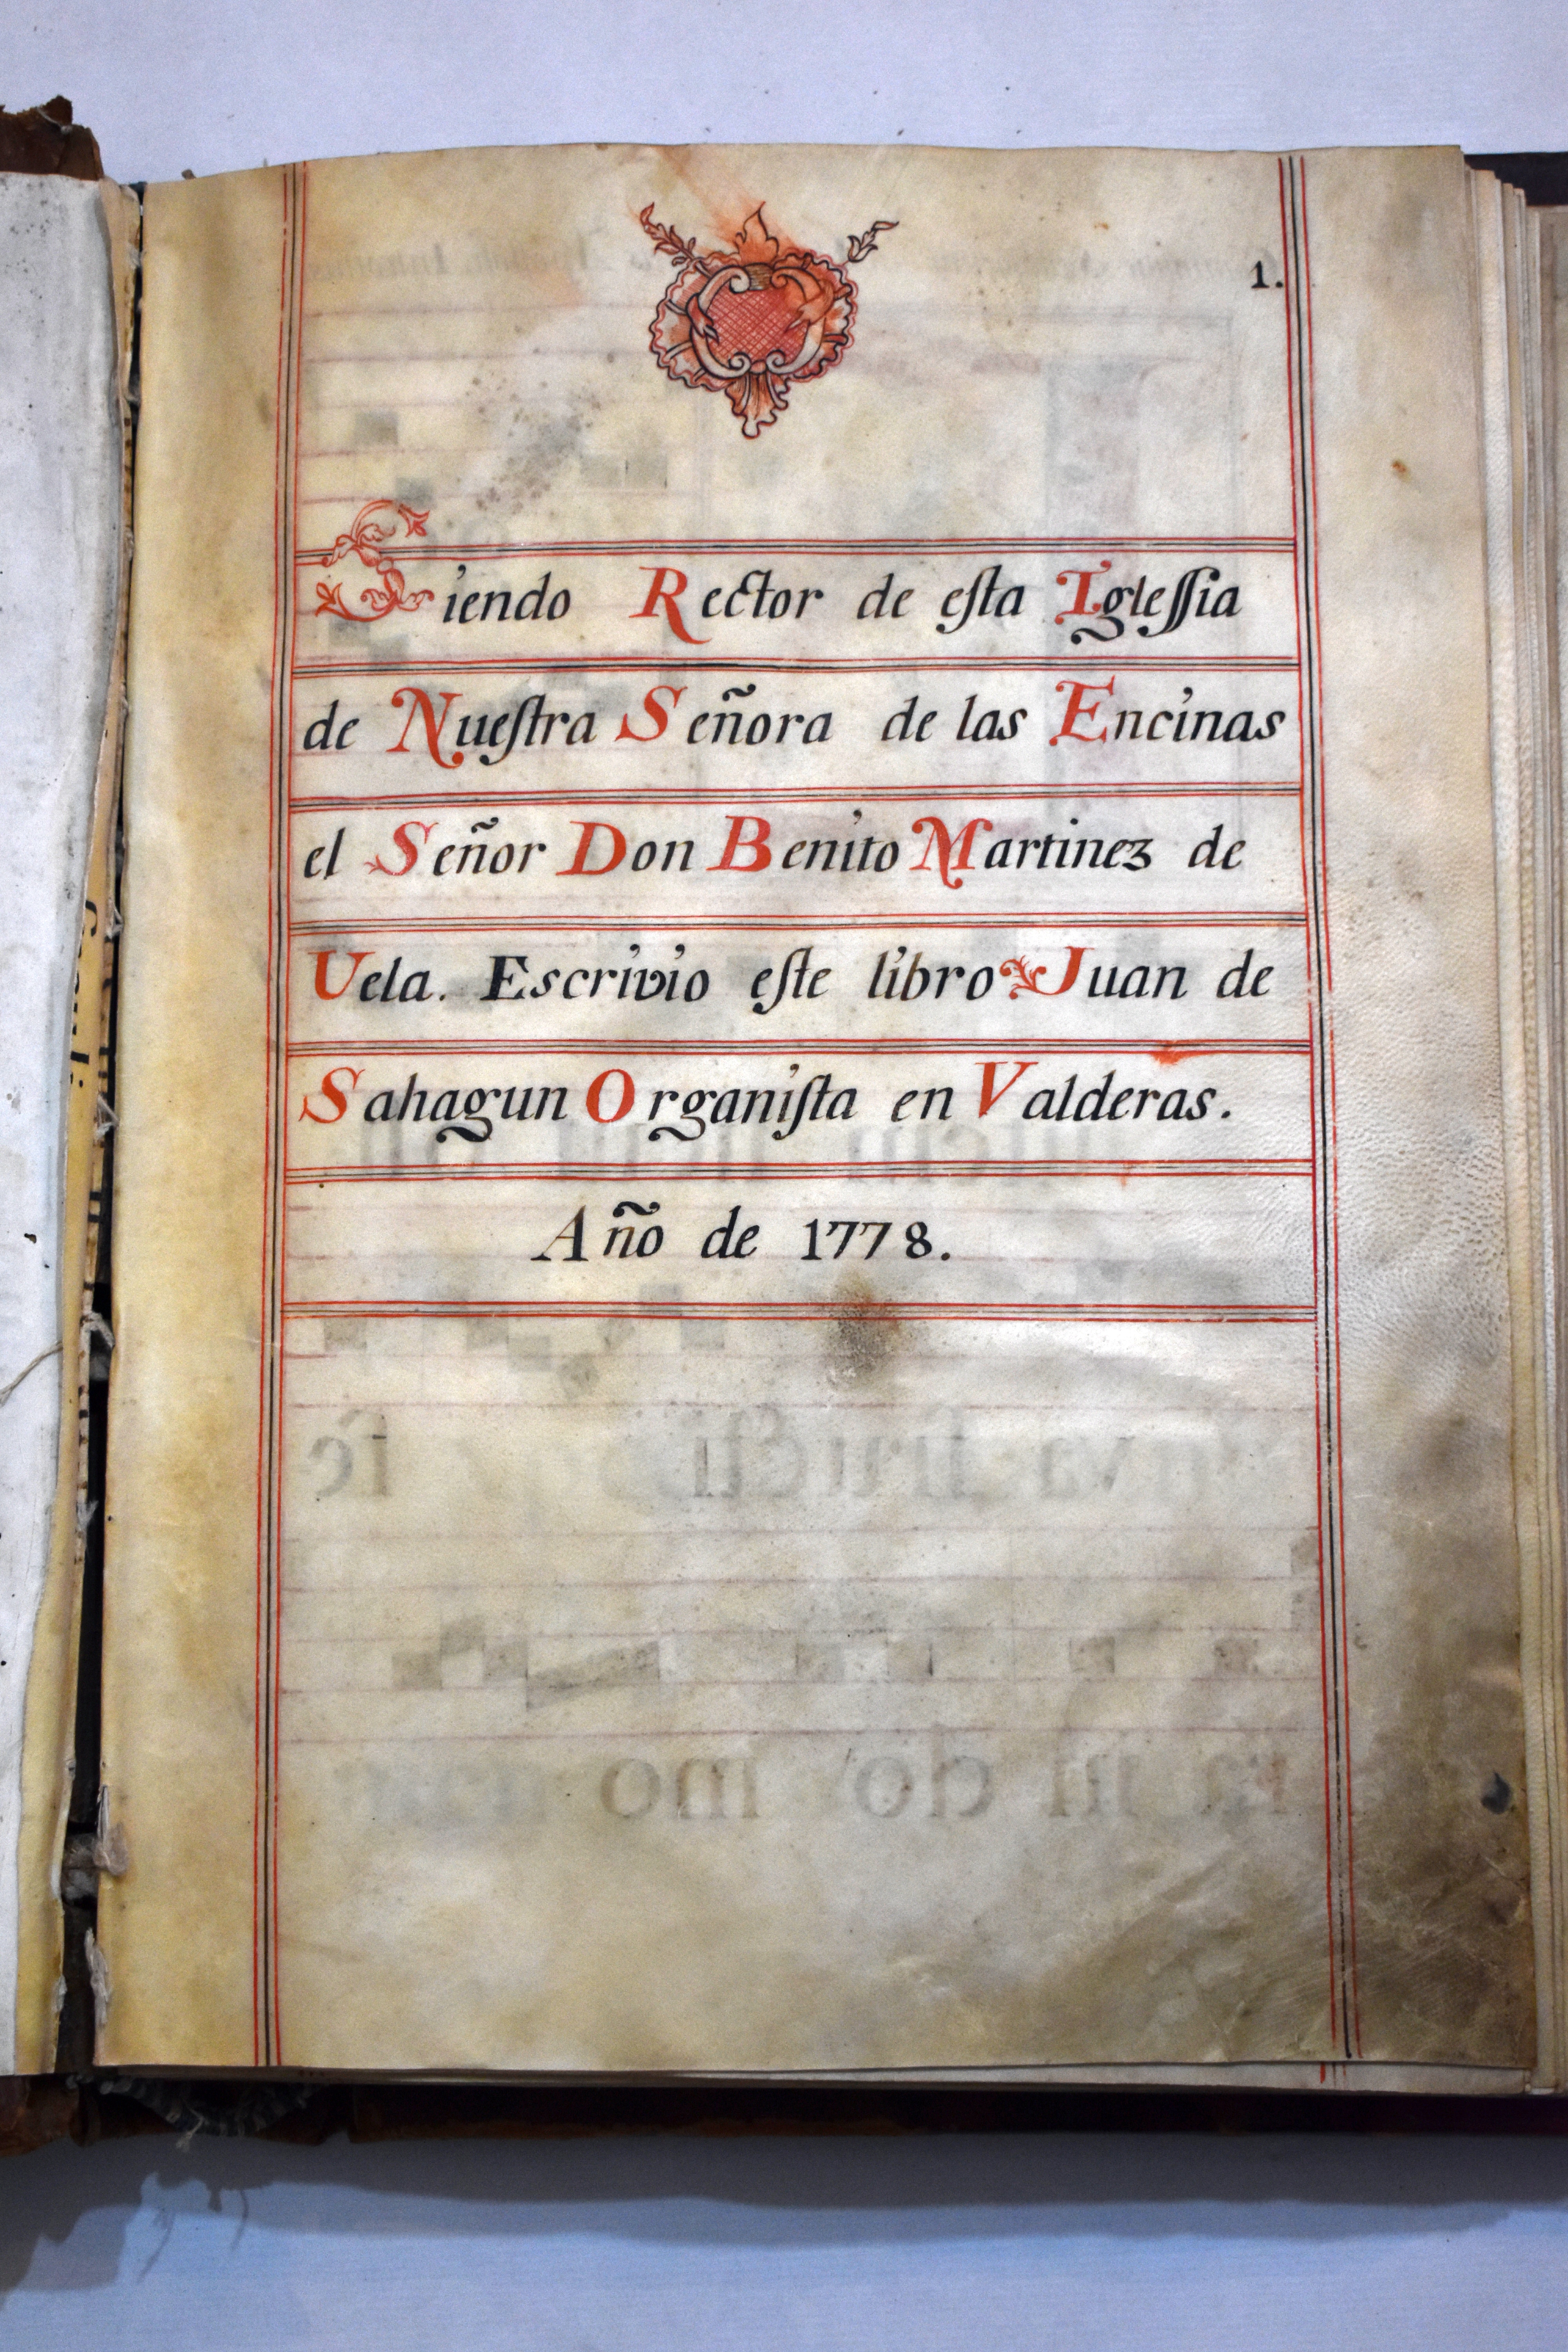 1.
Siendo Rector de eſta Igleſſia
de Nueſtra Señora de las Encinas
el Señor Don Benito Martinez de
Uela. Escrivio eſte libro Juan de
Sahagun Organiſta en Valderas.
Año de 1778.